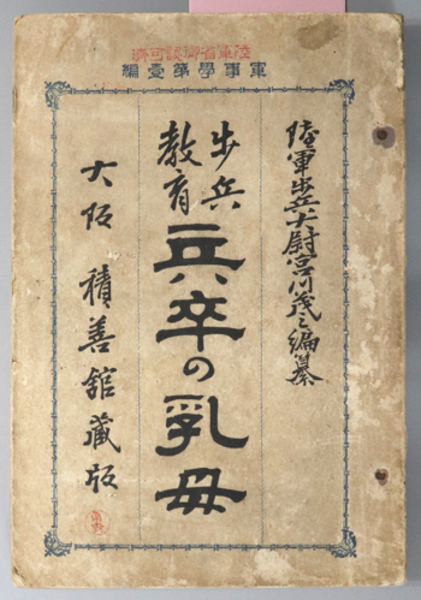 陸軍省御認可済
軍事學第壹編
陸軍歩兵大尉宮川茂之編纂
歩兵
教育
兵卒の乳母
大阪 積善舘蔵版